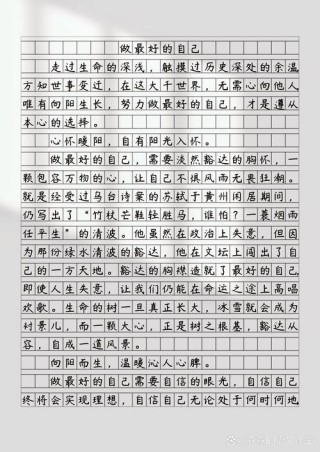 做最好的自己
走过生命的深浅，触摸过历史深处的余温
方知世事变迁，在这大千世界，无需心向他人
唯有向阳生长，努力做最好的自己，才是遵从
本心的选择。
心怀暖阳，自有阳光入怀。
做最好的自己，需要淡然豁达的胸怀，一
颗包容万物的心，让自己不惧风雨无畏狂潮。
就是经受过乌台诗案的苏轼于黄州闲居期间，
仍写出了“竹杖芒鞋轻胜马，谁怕？一蓑烟雨
任平生”的清波。他虽然在政治上失意，但因
为那份绿水清波的豁达，他在文坛上闯出了自
己的一方天地。豁达的胸襟造就了最好的自己
即使人生失意，让我们仍能在命运之途上高唱
欢歌。生命的树一旦真正长大，冰雪就会成为
衬景儿，而一颗大心，正是树之根基，豁达从
容，自成一道风景。
向阳而生，温暖沁人心脾。
做最好的自己需要自信的眼光，自信自己
终将会实现理想，自信自己无论处于何时何地